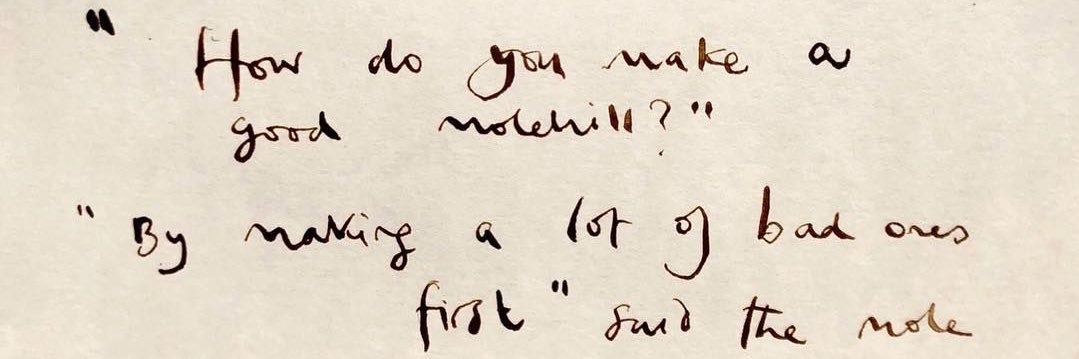 " How do you make a
good molehill?"
"By making a lot of bad ones
first" said the mole